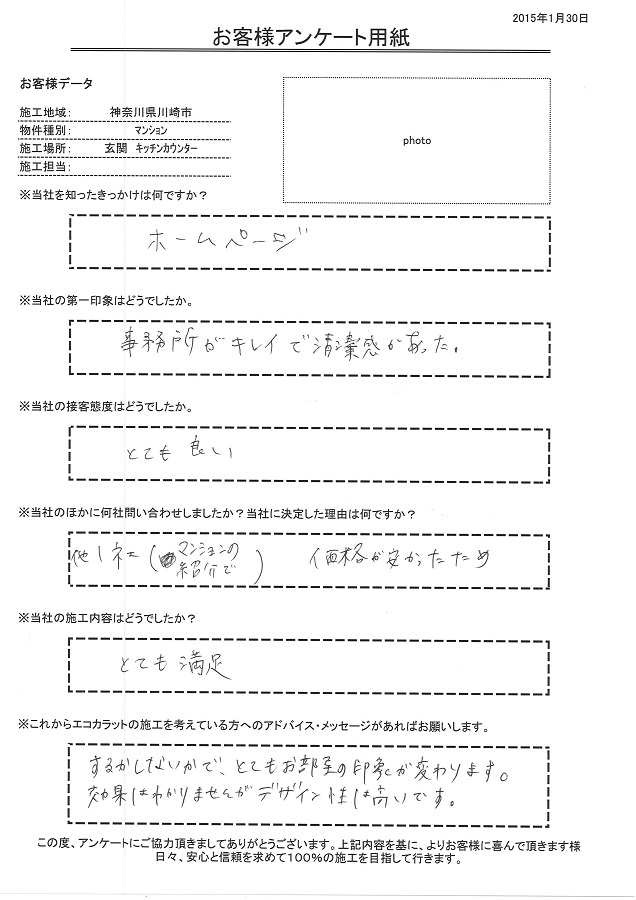 2015年1月30日
お客様アンケート用紙
お客様データ
photo
施工地域： 神奈川県川崎市
物件種別： マンション
施工場所： 玄関 キッチンカウンター
施工担当：
※当社を知ったきっかけは何ですか？
ホームページ
※当社の第一印象はどうでしたか。
事務所がキレイで清潔感があった。
※当社の接客態度はどうでしたか。
とても 良い
※当社のほかに何社問い合わせしましたか？当社に決定した理由は何ですか？
他1社（マンションの紹介で） 価格が安かったため
※当社の施工内容はどうでしたか？
とても 満足
※これからエコカラットの施工を考えている方へのアドバイス・メッセージがあればお願いします。
するかしないかで、とてもお部屋の印象が変わります。
効果はわかりませんがデザイン性は高いです。
この度、アンケートにご協力頂きましてありがとうございます。上記内容を基に、よりお客様に喜んで頂きます様
日々、安心と信頼を求めて100%の施工を目指して行きます。